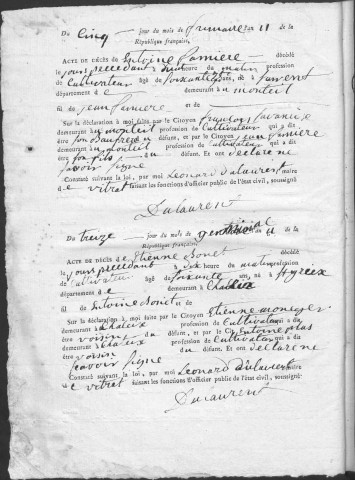 Du Cinq jour du mois de frimaire an 11 de la
République française,
ACTE DE DÉCÈS de Antoine Pamiere décédé
le jour precedant heure du matin profession
de Cultivateur âgé de soixante ans, né à
département d demeurant à monteil
fil de jean Pamiere et de
Sur la déclaration à moi faite par le Citoyen francois
demeurant à monteil profession de Cultivateur qui a dit
être son Beaufrere du défunt, et par le Citoyen jean Pamiere
demeurant à monteil profession de Cultivateur qui a dit
être son fils du défunt. Et ont declare ne
savoir signé
Constaté suivant la loi, par moi Leonard Dalaurent maire
de vitrat faisant les fonctions d'officier public de l'état civil, soussigné
Dalaurent
Du treize jour du mois de an 11 de la
République française,
ACTE DE DÉCÈS de Etienne Bonet décédé
le jour precedant à dix heure du matin profession
de Cultivateur âgé de soixante ans, né à
département d demeurant à Chaleix
fil de Antoine Bonet et de
Sur la déclaration à moi faite par le Citoyen Etienne
demeurant à Chaleix profession de Cultivateur qui a dit
être voisin du défunt, et par le Citoyen Antoine
demeurant à Chaleix profession de Cultivateur qui a dit
être voisin du défunt. Et ont declare ne
savoir signé
Constaté suivant la loi, par moi Leonard Dalaurent maire
de vitrat faisant les fonctions d'officier public de l'état civil, soussigné
Dalaurent